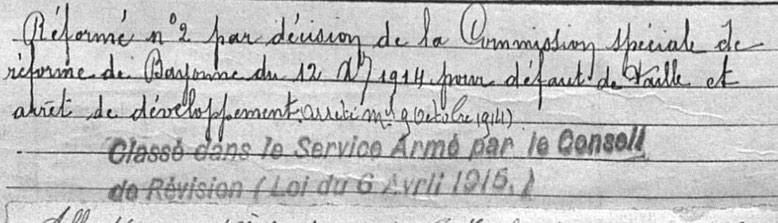 Réformé n° 2 par décision de la Commission spéciale de
réforme de Bayonne du 12 Xbre 1914 pour défaut de taille et
arrêt de développement, (arrêté mel 9 Octobre 1914)
Classé dans le Service Armé par le Conseil
de Révision (Loi du 6 Avril 1915.)